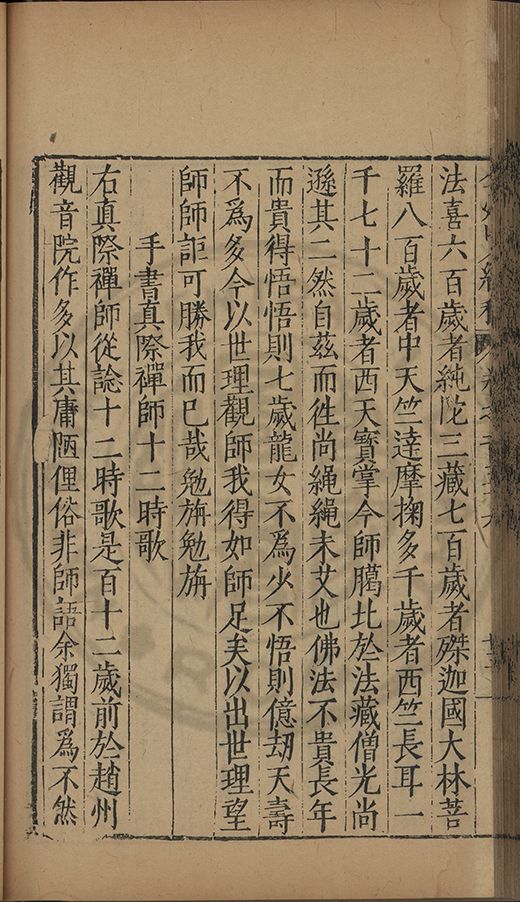 法喜六百歲者純陀三藏七百歲者磔迦國大林菩
羅八百歲者中天竺達摩掬多千歲者西竺長耳一
千七十二歲者西天寶掌今師臈比於法藏僧光尚
遜其二然自茲而徃尚繩繩未艾也佛法不貴長年
而貴得悟悟則七歲龍女不爲少不悟則億劫天壽
不爲多今以世理觀師我得如師足矣以出世理望
師師詎可勝我而已哉勉旃勉旃
手書真際禪師十二時歌
右真際禪師從諗十二時歌是百十二歲前於趙州
觀音院作多以其庸陋俚俗非師語余獨謂爲不然